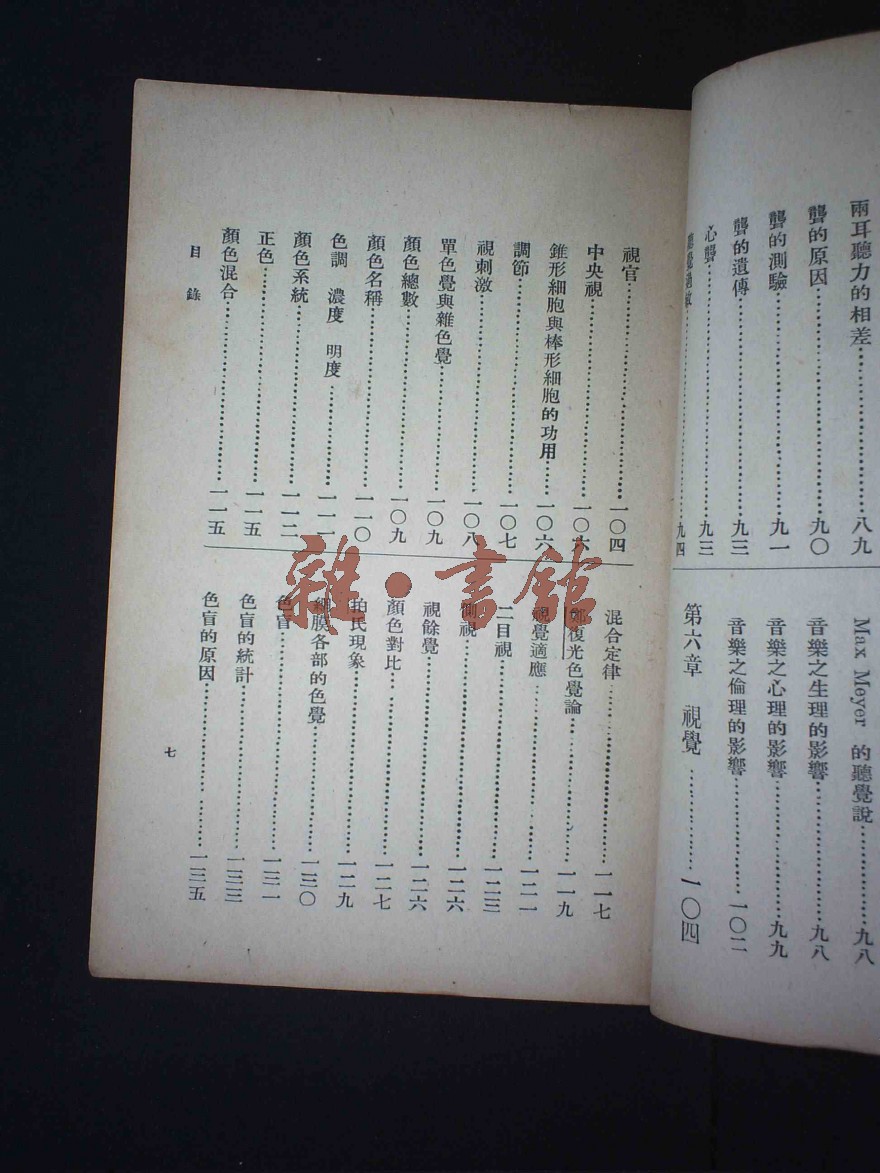 兩耳聽力的相差……八九
聾的原因……九〇
聾的測驗……九一
聾的遺傳……九三
心聾……九三
九四
Max Meyer 的聽覺說……九八
音樂之生理的影響……九八
音樂之心理的影響……九九
音樂之倫理的影響……一〇二
第六章 視覺……一〇四
視官……一〇四
中央視……一〇六
錐形細胞與棒形細胞的功用……一〇六
調節……一〇七
視刺激……一〇八
單色覺與雜色覺……一〇九
顏色總數……一〇九
顏色名稱……一一〇
色調 濃度 明度……一一一
顏色系統……一一二
正色……一一五
顏色混合……一一五
混合定律……一一七
鄭復光色覺論……一一九
視覺適應……一二一
二目視……一二三
側視……一二六
視餘覺……一二六
顏色對比……一二七
拍氏現象……一二九
網膜各部的色覺……一三〇
色盲……一三一
色盲的統計……一三三
色盲的原因……一三五
目錄
七
雜·書館